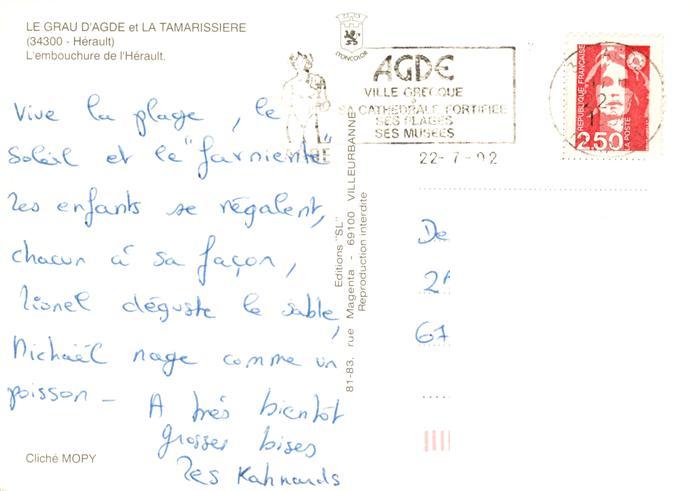 LE GRAU D'AGDE et LA TAMARISSIERE
(34300 - Hérault)
L'embouchure de l'Hérault.
Vive la plage, le
Soleil et le "farniente"
Les enfants se régalent,
chacun à sa façon,
Lionel déguste le sable,
Michaël nage comme un
poisson - A très bientôt
Grosses bises
Les Kahnards
Cliché MOPY
Editions "SL"
81-83, rue Magenta - 69100 VILLEURBANNE
Reproduction interdite
LYONCOLOR
AGDE
VILLE GRECQUE
SA CATHEDRALE FORTIFIEE
SES PLAGES
SES MUSEES
22-7-92
REPUBLIQUE FRANÇAISE
2,50
LA POSTE
De
67